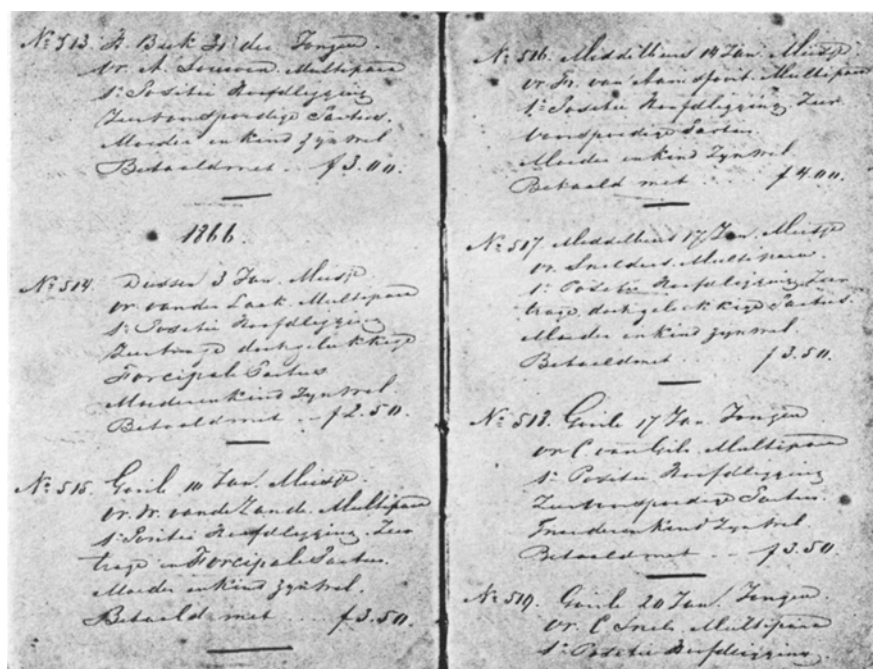 No 513. H. Beek 31 dec Jongen.
vr. A. Multipara
1e Positie Hoofdligging
Zeer voorspoedige Partus.
Moeder en kind zyn wel
Betaald met .. f 3.00.
1866.
No 514. Dussen 3 Jan. Meisje
vr. van der Laak. Multipara
1e Positie Hoofdligging
Zeer trage doch gelukkige
Forcipale Partus
Moeder en kind zyn wel.
Betaald met .. f 2.50.
No 515. Goirle 10 Jan. Meisje.
vr. W. van de Zande. Multipara
1e Positie Hoofdligging. Zeer
trage en Forcipale Partus.
Moeder en kind zyn wel.
Betaald met .... f 3.50.
No 516. Middelbeers 14 Jan. Meisje
vr. Fr. van Aamsfoort. Multipara
1e Positie Hoofdligging. Zeer
voorspoedige Partus.
Moeder en kind Zyn wel.
Betaald met ..... f 4.00.
No 517. Middelbeers 17 Jan. Meisje
vr. Snelders. Multipara
1e Positie Hoofdligging. Zeer
trage doch gelukkige Partus.
Moeder en kind zyn wel.
Betaald met .... f 3.50.
No 518. Goirle 17 Jan. Jongen
vr. C. van Gils. Multipara
1e Positie Hoofdligging
Zeer voorspoedige Partus.
Moeder en kind Zyn wel.
Betaald met .... f 3.50.
No 519. Goirle 20 Jan. Jongen.
vr. C Snels Multipara
1e Positie Hoofdligging